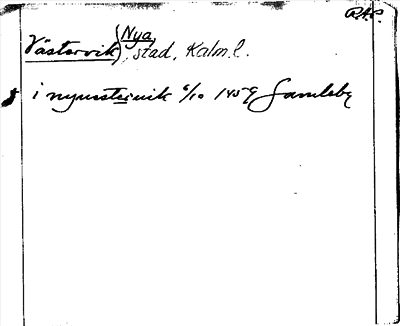 R.A.P.
Västervik (Nya), stad, Kalm. l.
i nyuesteruik 6/10 1459 Gamleby